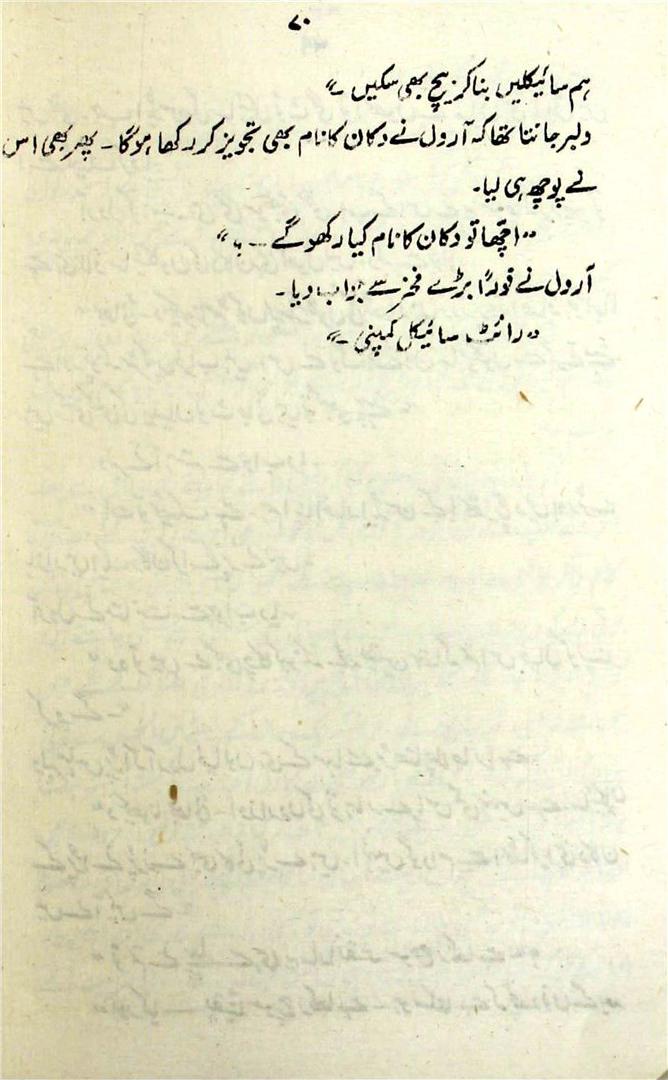 ۷۰
ہم سائیکلیں بنا کر بیچ بھی سکیں ۔"
ولبر جانتا تھا کہ آرول نے دکان کا نام بھی تجویز کر رکھا ہوگا ۔ پھر بھی اس
نے پوچھ ہی لیا۔
"اچھا تو دکان کا نام کیا رکھو گے ۔۔ ؟"
آرول نے فوراً بڑے فخر سے جواب دیا ۔
"رائٹ سائیکل کمپنی ۔"